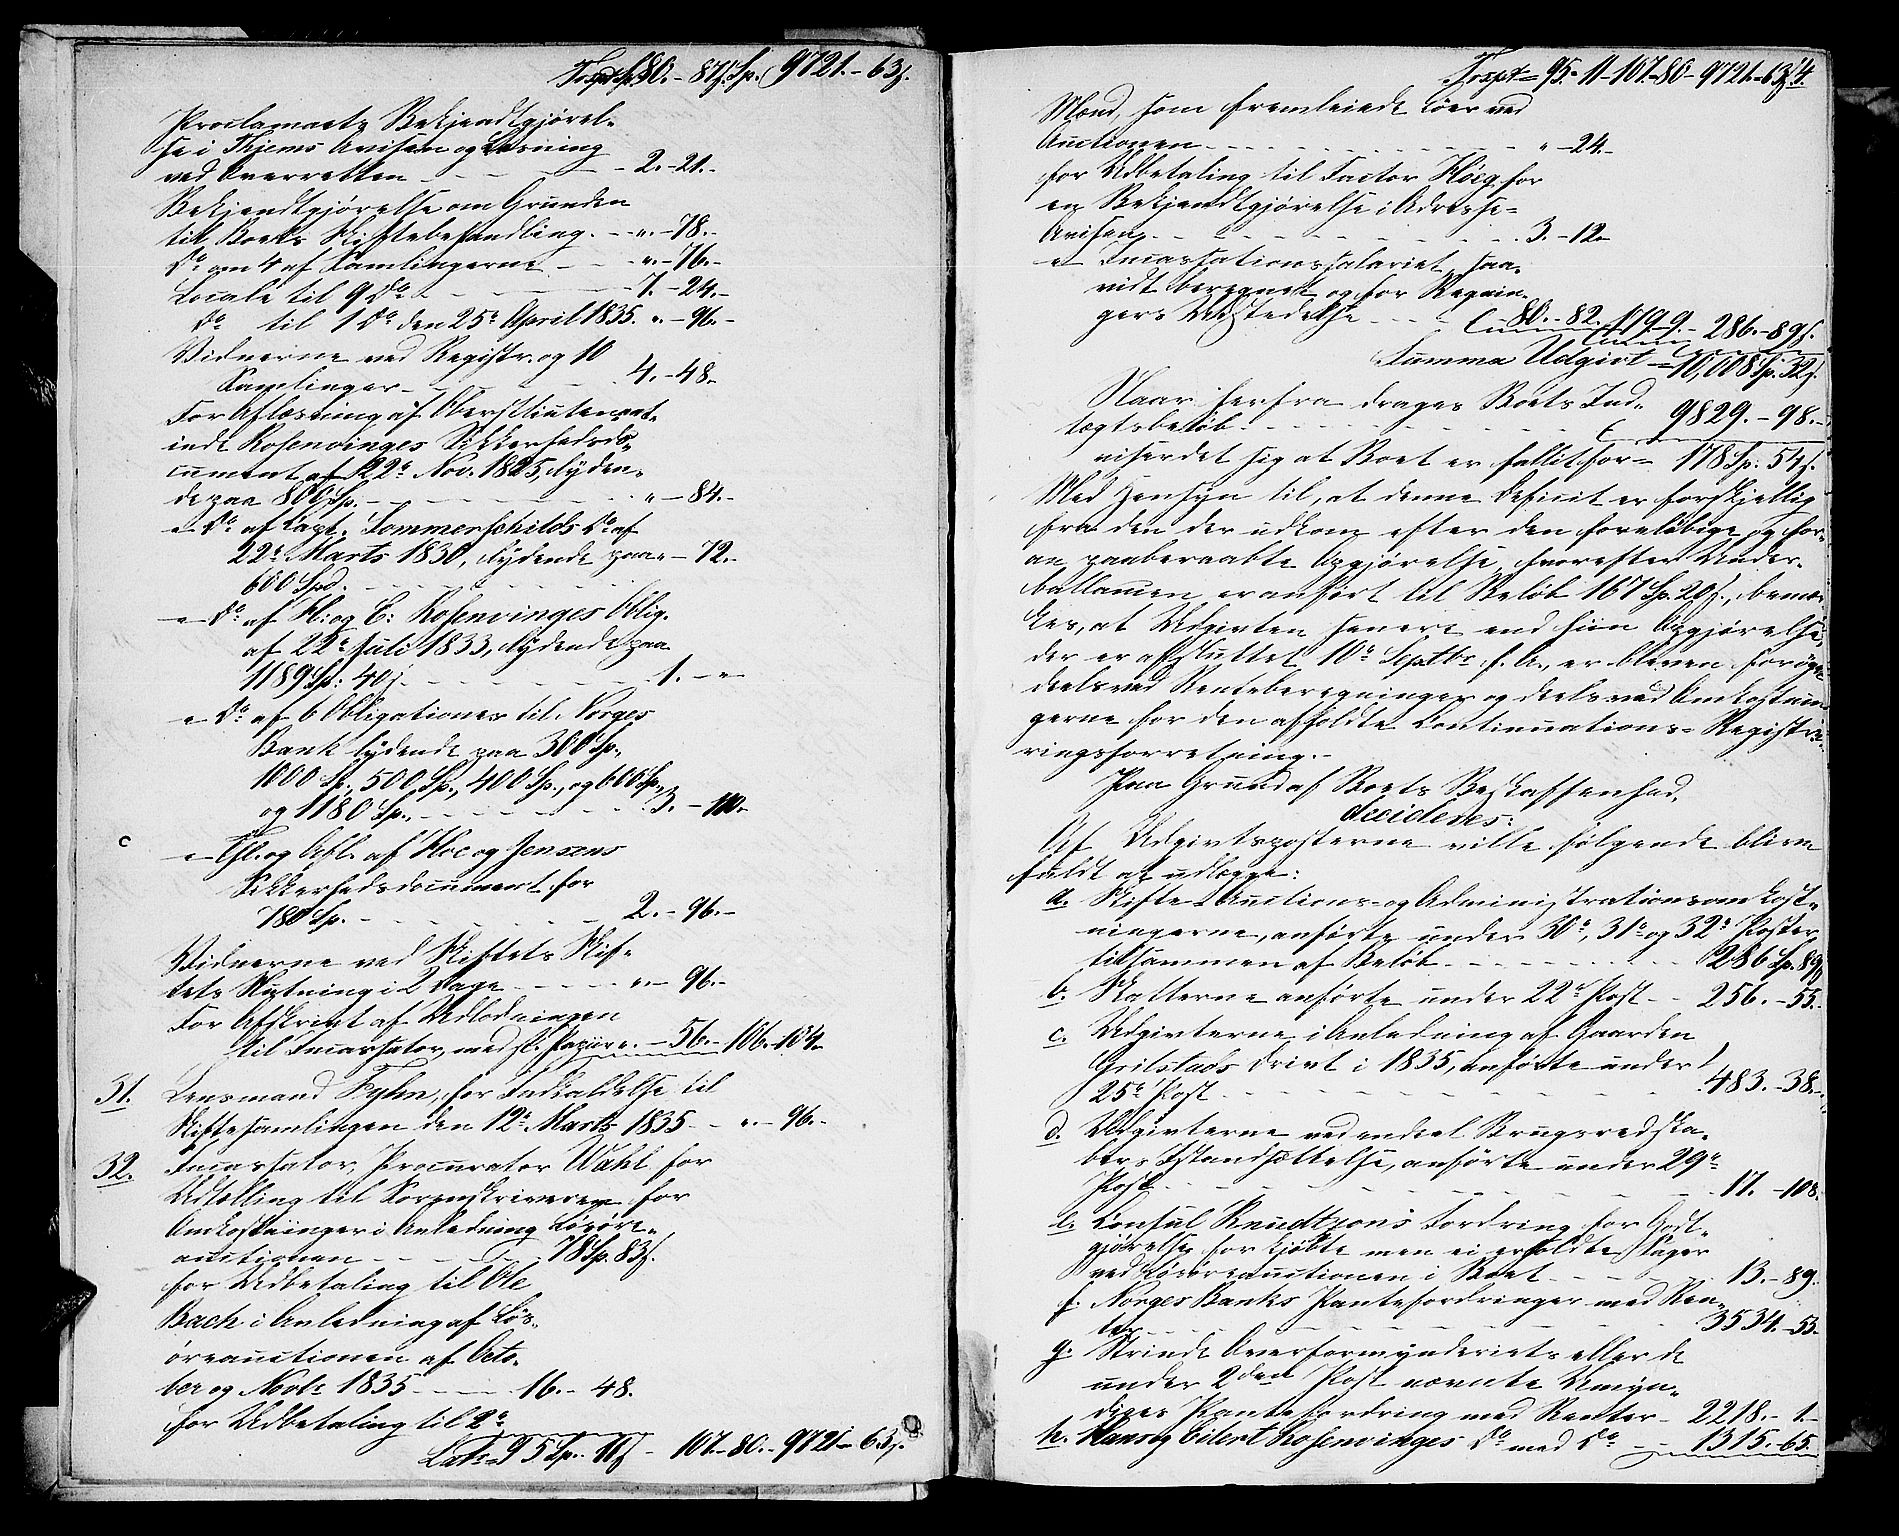 Trspt Sp. 80. - 87ß. Sp. 9721. - 63ß.
Proclamaets Bekjendtgjørel-
se i Thjems Avisen og Læsning
ved Overretten - - - 2. - 21. -
Bekjendtgjørelse om Grunden
til Boets Skiftebehandling. - - " - 78. -
Do om 4 af Samlingerne - - " - 76. -
Locale til 9 Do - - - 7. - 24. -
Do til 1 Do den 25de April 1835. " - 96. -
Vidnerne ved Registr. og 10
Samlinger - - - 4. - 48. -
For Aflæsning af Oberstlieutenant-
inde Rosenvinges Sikkerhedsdo-
cument af 22de Nov. 1825, lyden-
de paa 800 Sp. - - - " - 84. -
" Do af Capt. Sommerschilds Do af
22de Marts 1830, lydende paa " - 72. -
600 Spd. - - -
" Do af H. og C: Rosenvinges Oblig.
af 22de Juli 1833, lydende paa
1189 Sp: 40ß - - - 1. - "
" Do af 6 Obligationer til Norges
Bank lydende paa 300 Sp.,
1000 Sp., 500 Sp., 400 Sp., og 600 Sp.,
og 1180 Sp., - - - 3. -
" Thl. og Afl. af Hoe og Jensens
Sikkerhedsdocument for
780 Sp. - - - 2. - 96. -
Vidnerne ved Skiftets Slu-
tets Slutning i 2 Dage - - - " - 96. -
For Afskrivt af Udlodningen
til Incassator, med st. Papiir. - 56. - 106. - 104.
31. Lensmand Fyhn, for Indkaldelse til
Skiftesamlingen den 12te Marts 1835 - - " - 96. -
32. Incassator, Procurator Wahl for
Udtælling til Sorenskriveren for
Omkostninger i Anledning Løsøre-
auctionen - - - 78 Sp. 83ß.
for Udbetaling til Ole
Bach i Anledning af Løs-
øreauctionen af Octo-
ber og Novbr 1835 - - - 16. - 48.
for Udbetaling til 2de
Lats 95 Sp. 11ß - 107. - 80. - 9721 - 63ß.
Trspt = 95. - 11 - 107 - 80 - 9721 - 63ß
Mænd, som fremleiede Køer ved
Auctionen - - - " - 24. -
for Udbetaling til Factor Høeg for
en Bekjendtgjørelse i Adresse-
Avisen - - - 3. - 12 -
" Incassationssalariet, saa-
vidt beregnet og for Regnin-
gers Udstedelse - - - 80. - 82. 179 9. - 286. - 89ß.
Summa Udgivt = 10,008 Sp. 32ß.
Naar herfra drages Boets Ind-
tægtsbeløb - - - 9829. - 98. -
viser det sig at Boet er fallit for = 178 Sp. 54ß.
Med Hensyn til, at denne Deficit er forskjellig
fra den der udkom efter den foreløbige og for-
an paaberaabte Opgjørelse, hvorefter Under-
ballancen er anført til Beløb 167 Sp. 20ß., bemær-
kes, at Udgivten senere end hiin Opgjørelse,
der er afsluttet 10de Septbr f. A., er bleven forøget
deels ved Renteberegninger og deels ved Omkostnin-
gerne for den afholdte Continuations-Registre-
ringsforretning. -
Paa Grund af Boets Beskaffenhed,
decideres:
Af Udgivtsposterne ville følgende blive
fuldt at udlægge:
a. Skifte- Auctions- og Administrationsomkost-
ningerne, anførte under 30te, 31te og 32te Poster
tilsammen af Beløb - - - 286 Sp. 89ß
b. Skatterne anførte under 22de Post - - 256. - 55.
c. Udgivterne i Anledning af Gaarden
Grilstads Drivt i 1835, anførte under
25de Post - - - 483. - 38. -
d. Udgivterne ved endeel Brugsredska-
bers Istandsættelse, anførte under 29de
Post - - - 17. - 108.
e. Consul Knudtzons Fordring for Godt-
gjørelse for kjøbte men ei erholdte Sager
ved Løsøreauctionen i Boet - - - 13. - 89.
f. Norges Banks Pantefordringer med Ren-
ter - - - 3534. - 55.
g. Strinde Overformynderiets eller de
under 2den Post nævnte Umyn-
diges Pantefordring med Renter - 2218. - 1. -
h. Hans og Eilert Rosenvinges Do med Do - - 1315. - 65.